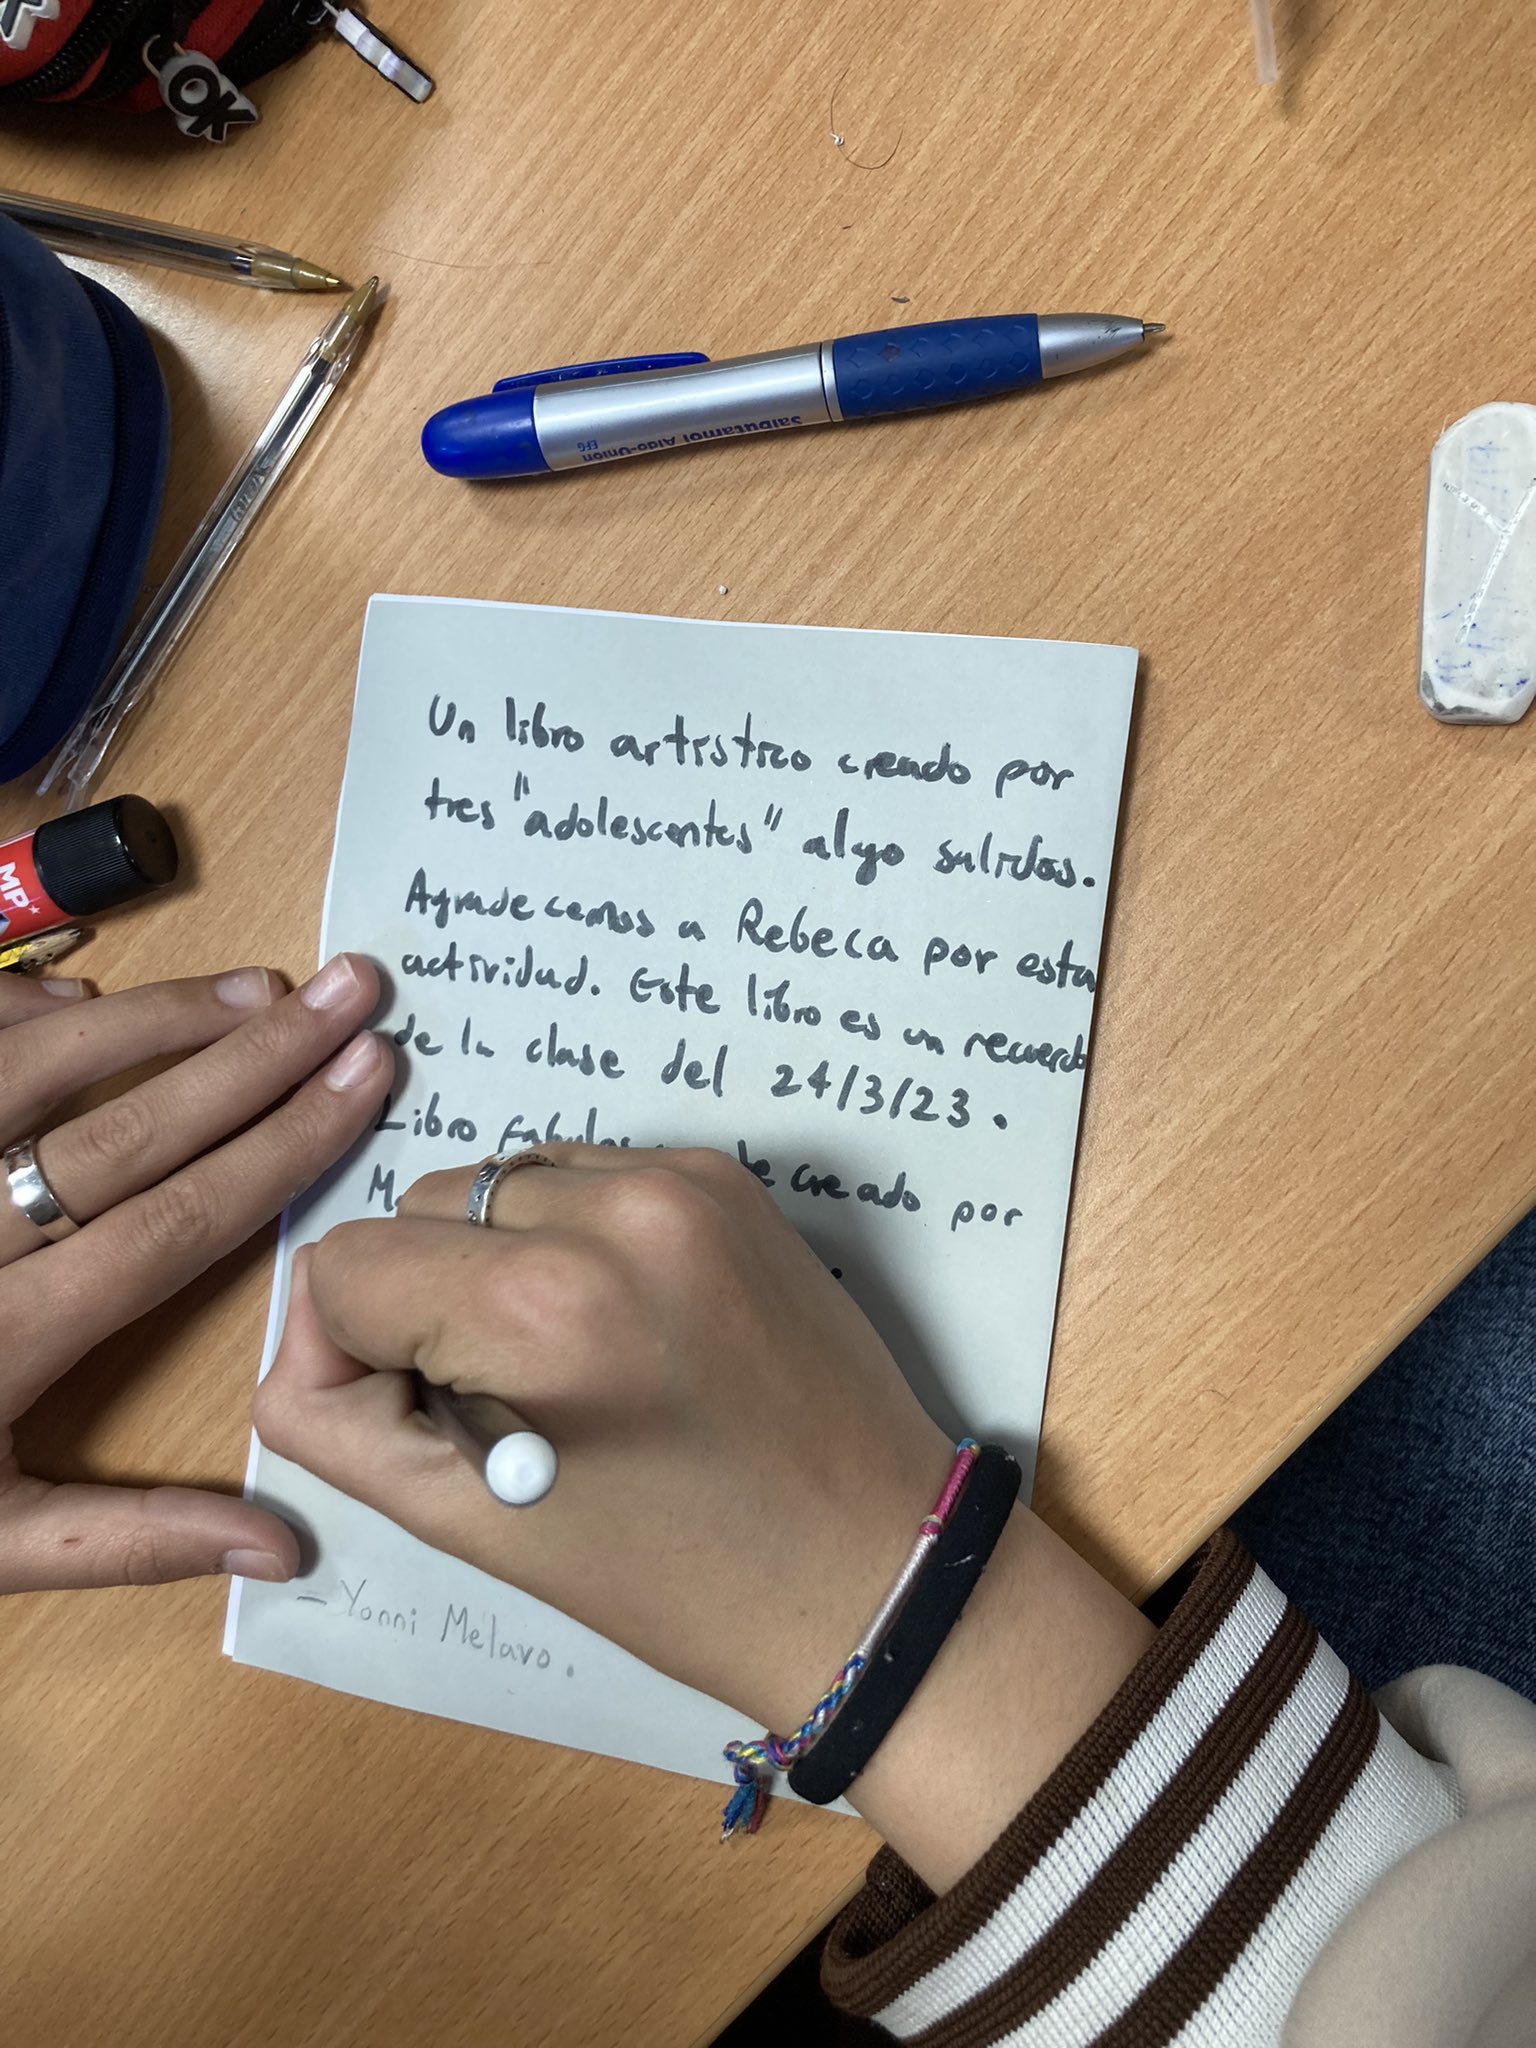 OK
Salbutamol Aldo-Union
EFG
MP
Un libro artistico creado por
tres "adolescentes" algo salidos.
Agradecemos a Rebeca por esta
actividad. Este libro es un recuerdo
de la clase del 24/3/23.
Libro creado por
- Yonni Melavo.